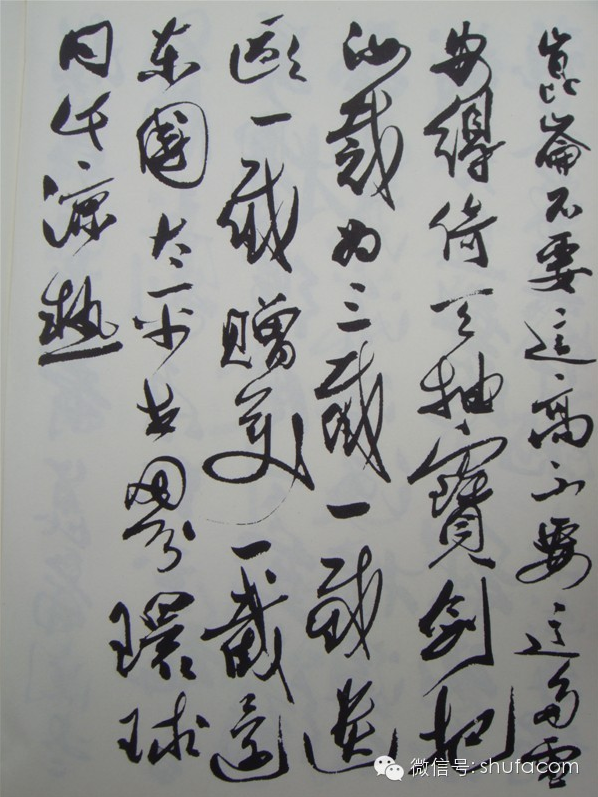 崑崙不要這高不要這多雪
安得倚天抽寶劍把
汝裁为三截一截遗
歐一截赠美一截還
东國太平世界環球
同此涼熱
微信号: shufacom